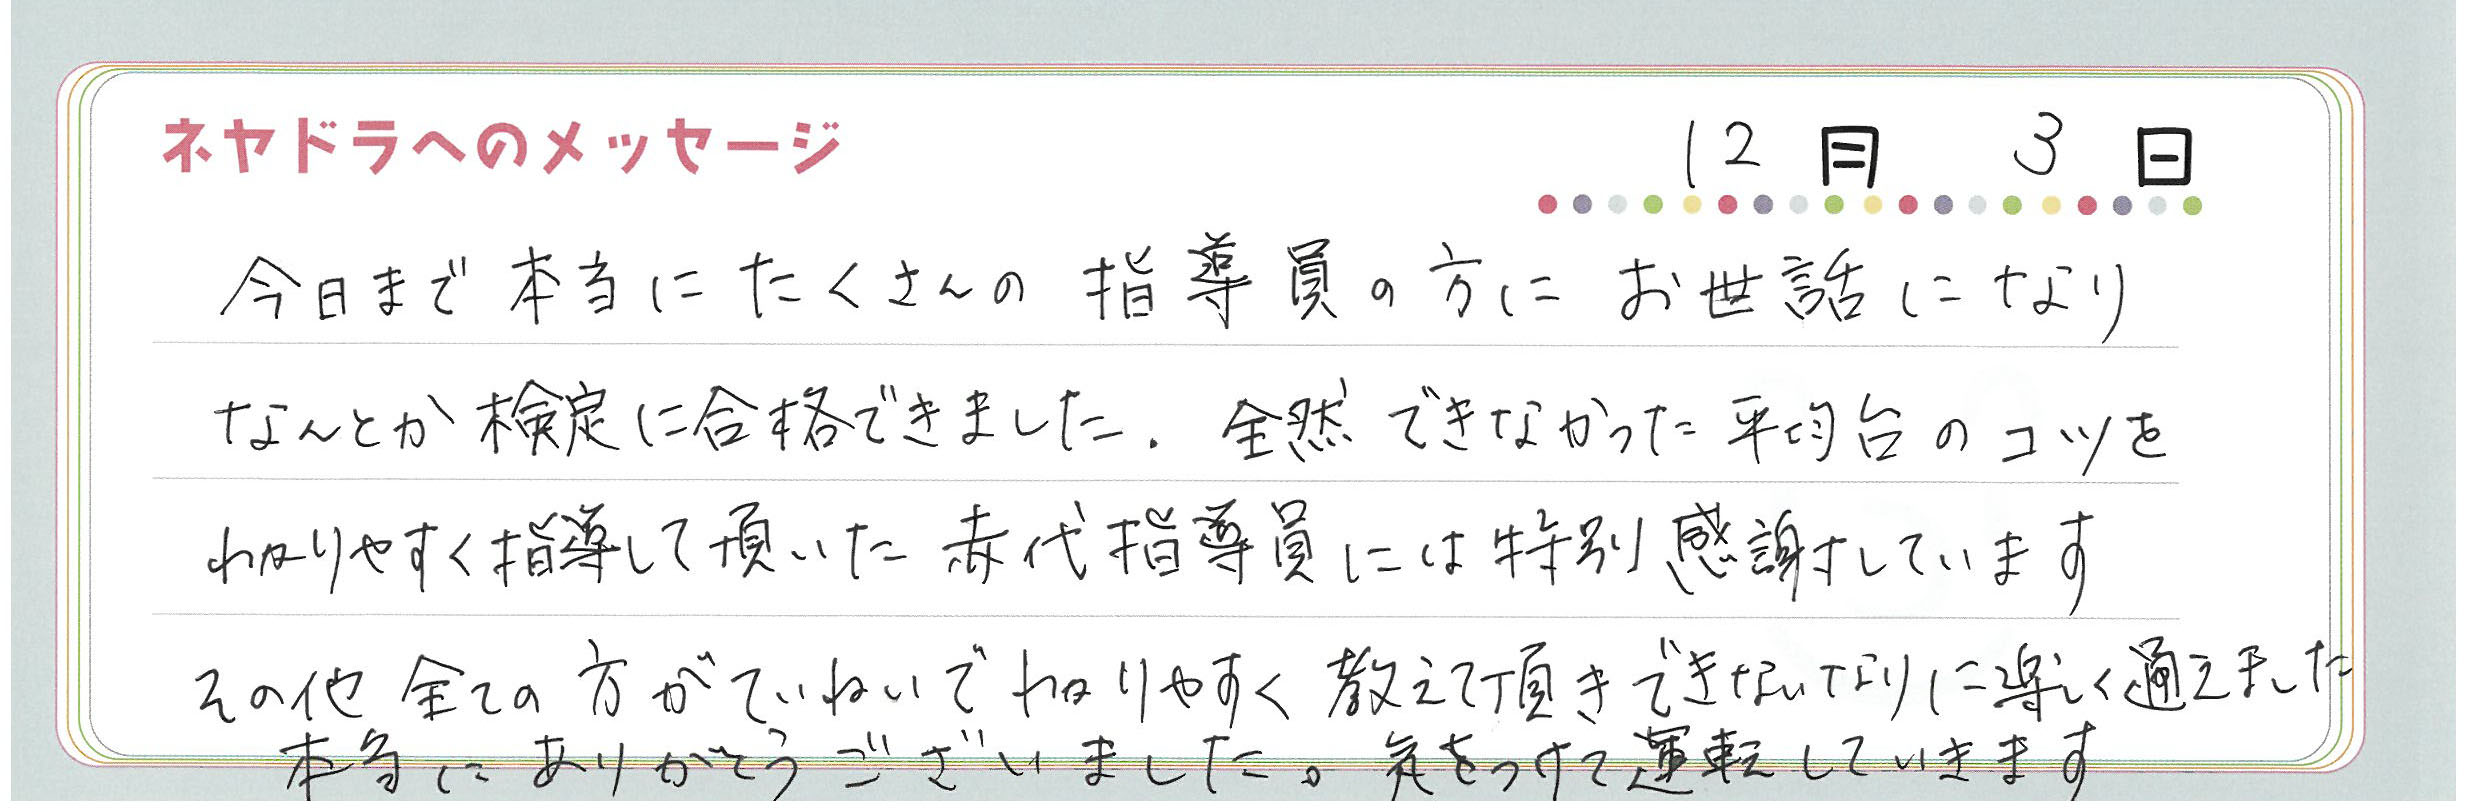 ネヤドラへのメッセージ
12月 3日
今日まで本当にたくさんの指導員の方にお世話になり
なんとか検定に合格できました. 全然できなかった平均台のコツを
わかりやすく指導して頂いた赤代指導員には特別感謝しています
その他全ての方がていねいでわかりやすく教えて頂きできないなりに楽しく通えました
本当にありがとうございました。気をつけて運転していきます